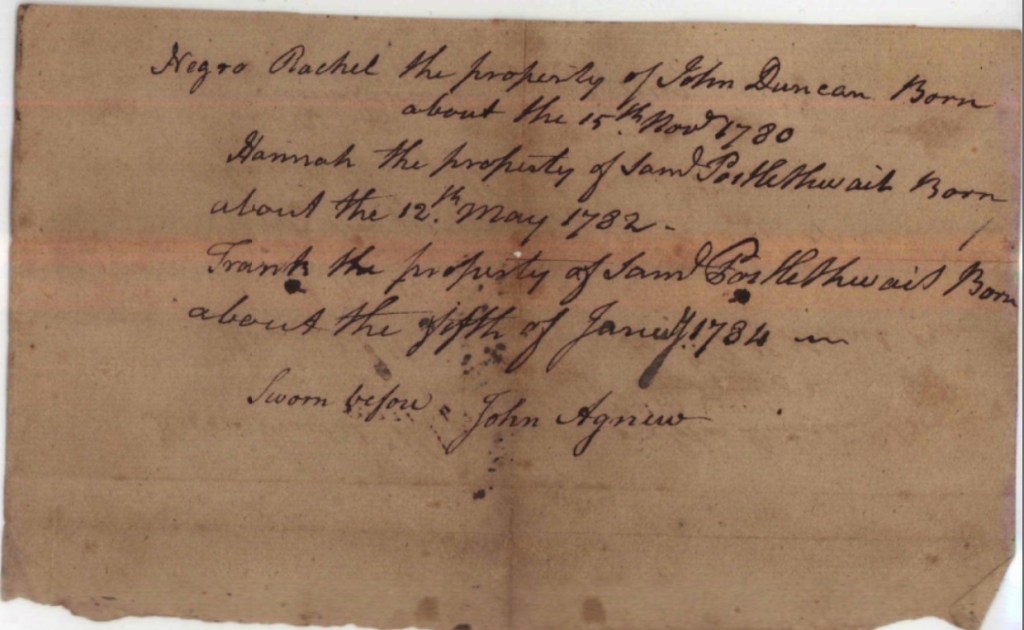 Negro Rachel the property of John Duncan Born
about the 15th Novr 1780
Hannah the property of Saml Postlethwait Born
about the 12th May 1782 -
Frank the property of Saml Postlethwait Born
about the fifth of Janury 1784
Sworn before John Agnew